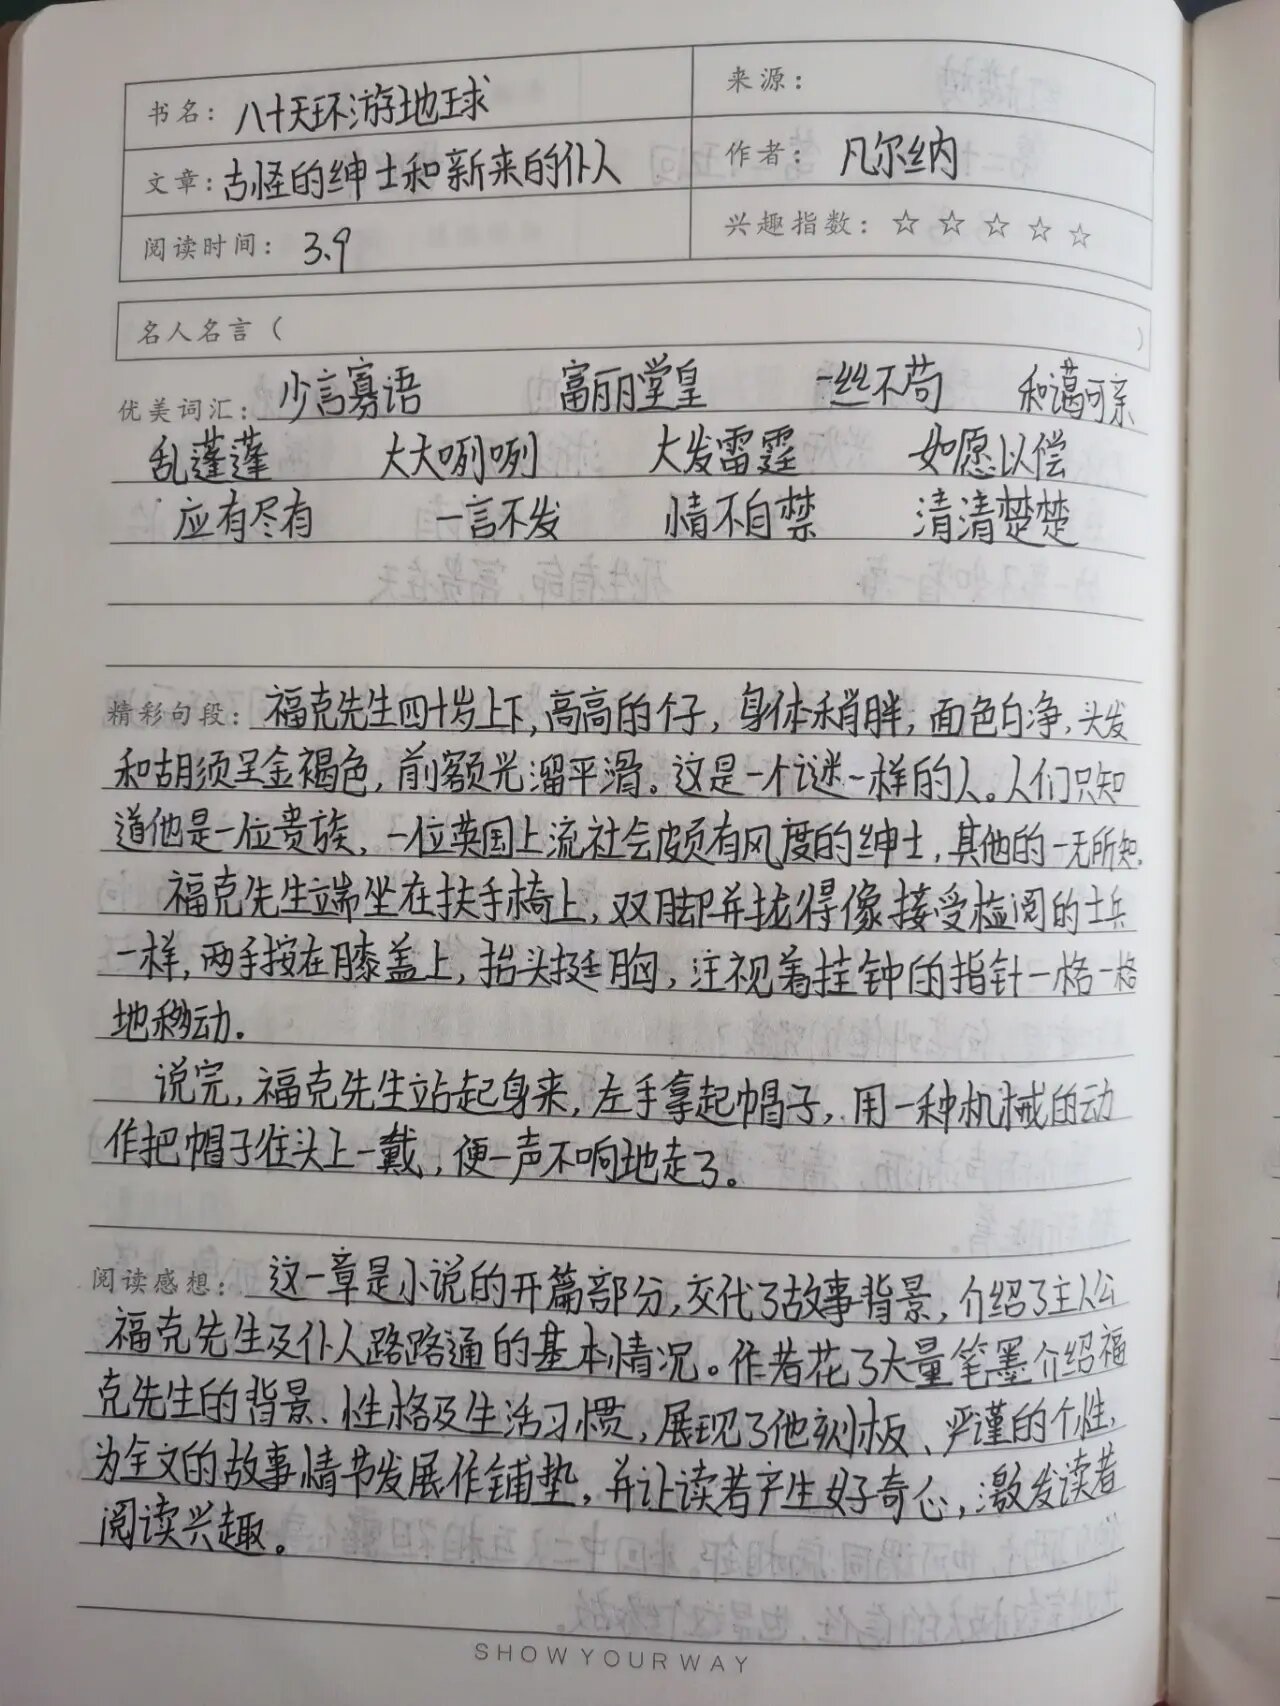 书名：八十天环游地球
来源：
文章：古怪的绅士和新来的仆人
作者：凡尔纳
阅读时间：3.9
兴趣指数：☆ ☆ ☆ ☆ ☆
名人名言（ ）
优美词汇：少言寡语 富丽堂皇 一丝不苟 和蔼可亲
乱蓬蓬 大大咧咧 大发雷霆 如愿以偿
应有尽有 一言不发 情不自禁 清清楚楚
精彩句段：福克先生四十岁上下，高高的个子，身体稍胖，面色白净，头发
和胡须呈金褐色，前额光溜平滑。这是一个谜一样的人。人们只知
道他是一位贵族、一位英国上流社会颇有风度的绅士，其他的一无所知。
福克先生端坐在扶手椅上，双脚并拢得像接受检阅的士兵
一样，两手按在膝盖上，抬头挺胸，注视着挂钟的指针一格一格
地移动。
说完，福克先生站起身来，左手拿起帽子，用一种机械的动
作把帽子往头上一戴，便一声不响地走了。
阅读感想：这一章是小说的开篇部分，交代了故事背景，介绍了主人公
福克先生及仆人路路通的基本情况。作者花了大量笔墨介绍福
克先生的背景、性格及生活习惯，展现了他刻板、严谨的个性，
为全文的故事情节发展作铺垫，并让读者产生好奇心，激发读者
阅读兴趣。
SHOW YOUR WAY